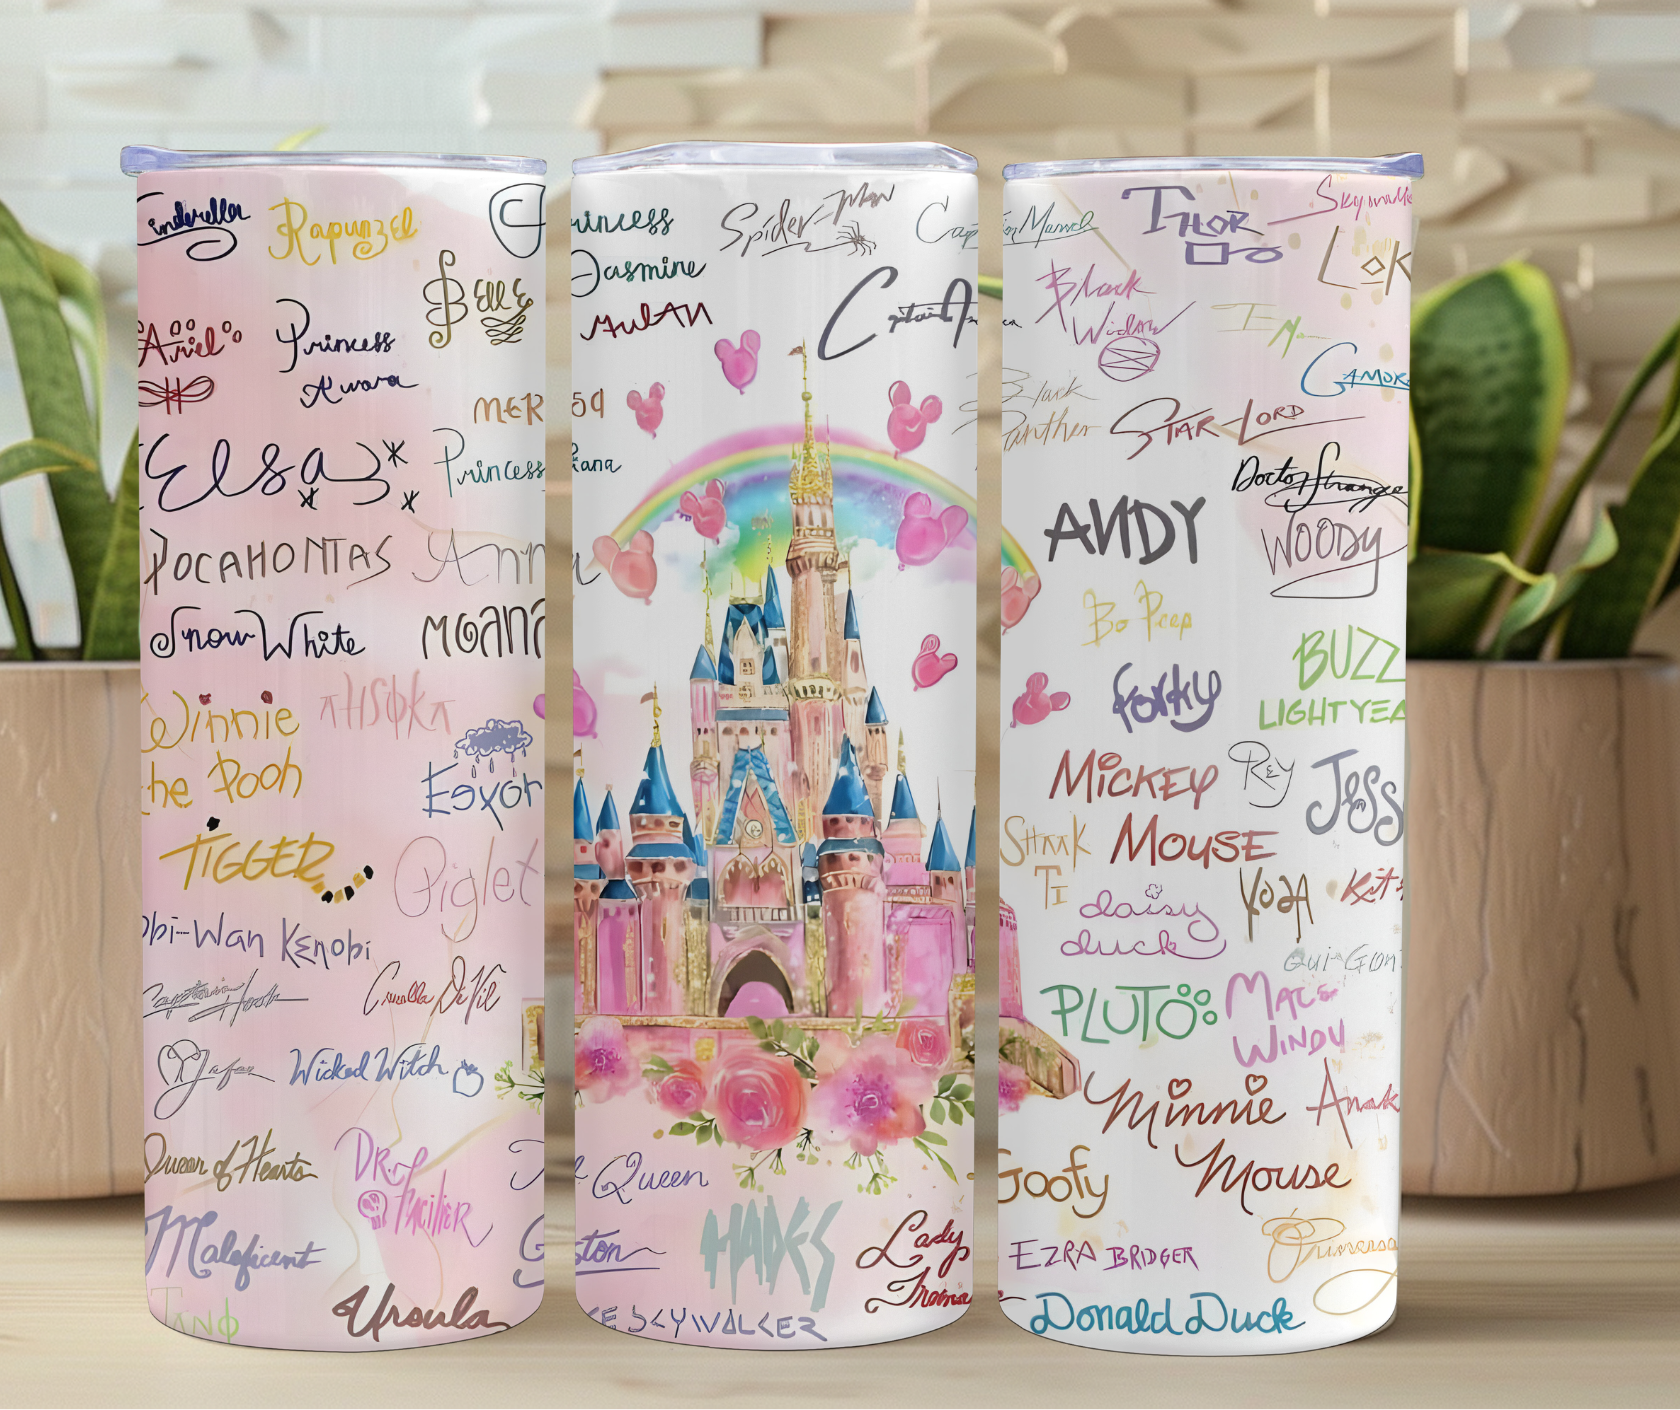 Cinderella
Rapunzel
Belle
Ariel
Princess
Awara
MER
Elsa
Princess
POCAHONTAS
Ann
Snow White
MOANA
Winnie
the Pooh
AHSOKA
Eeyor
TIGGER
Piglet
Obi-Wan Kenobi
Captain Hook
Cruella De Vil
Jafar
Wicked Witch
Queen of Hearts
DR.
Facilier
Maleficent
TANO
Ursula
rincess
Jasmine
MULAN
Spider-Man
Cap
Captain A
iana
Queen
HADES
ston
Lady
Trema
KE SKYWALKER
Marvel
THOR
Skywalke
LOK
Black
Widow
GAMOR
Black
Panther
STAR-LORD
Doctor Strange
ANDY
WOODY
Bo Peep
BUZZ
LIGHTYEA
Forky
MICKEY
MOUSE
REY
JESS
SHAAK
TI
daisy
duck
YODA
Kit
QUI-GON
PLUTO
MACE
WINDU
Minnie
Mouse
Anak
Goofy
EZRA BRIDGER
Princess
Donald Duck